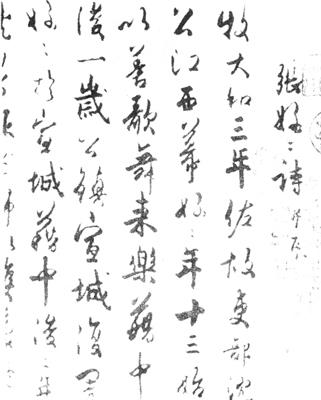 張好〻詩 并序
牧大和三年佐故吏部沈
公江西幕好〻年十三始
以善歌舞来樂籍中
後一歲公鎮宣城復置
好〻於宣城籍中後二